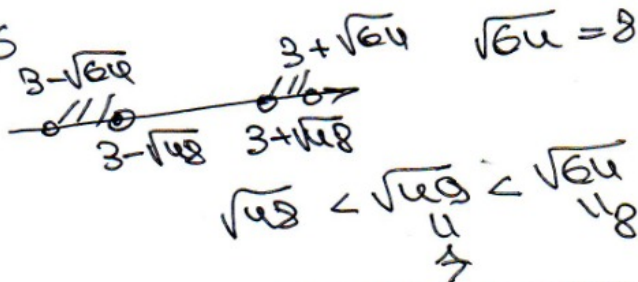 3-√64
3+√64
√64 = 8
3-√48
3+√48
√48 < √49 < √64
7
8